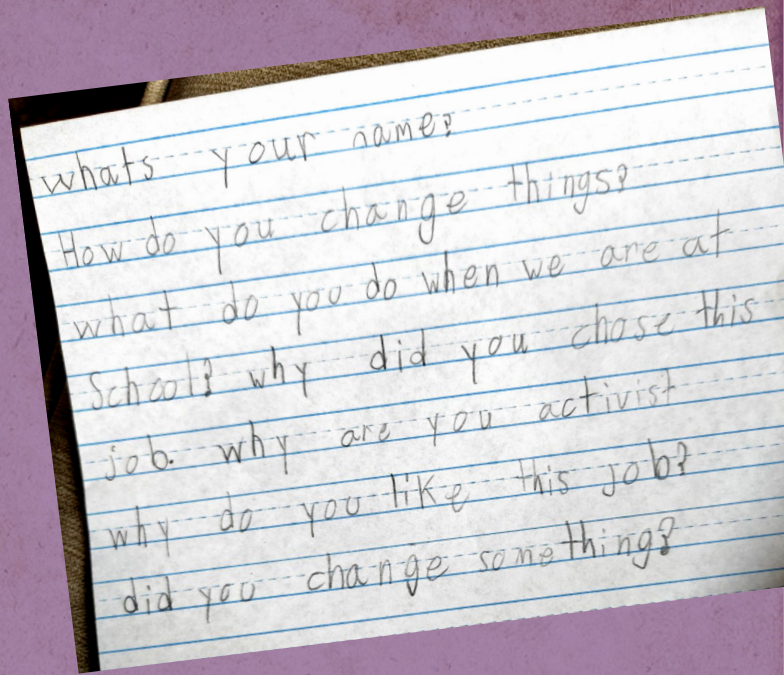 whats your name?
How do you change things?
what do you do when we are at
School? why did you chose this
job. why are you activist
why do you like this job?
did you change something?